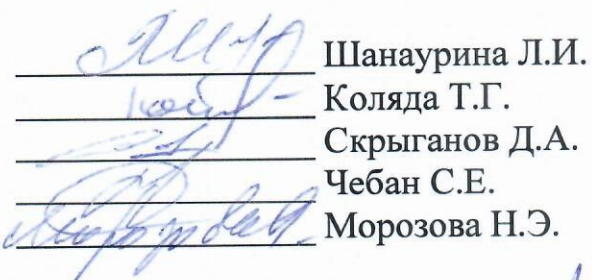 Шанаурина Л.И.
Коляда Т.Г.
Скрыганов Д.А.
Чебан С.Е.
Морозова Н.Э.